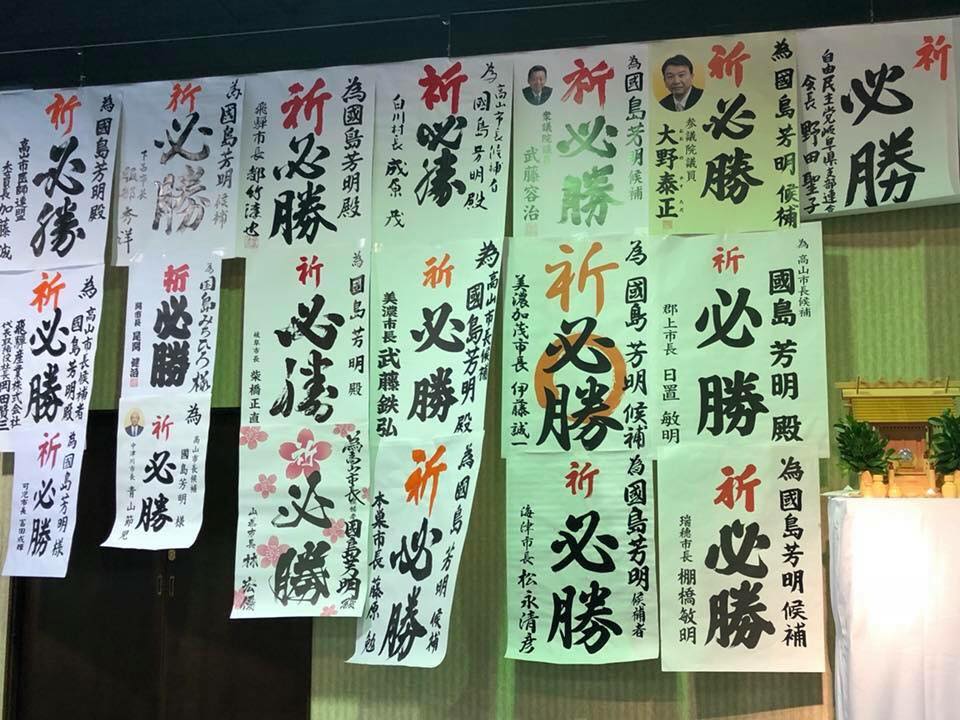 祈
必勝
自由民主党岐阜県支部連合
会長 野田聖子
為國島芳明候補
祈
必勝
衆議院議員
大野泰正
為國島芳明候補
祈
必勝
衆議院議員
武藤容治
高山市長候補者
為 國島芳明殿
祈
必勝
白川村長 成原 茂
為國島芳明殿
祈
必勝
飛騨市長 都竹淳也
為國島芳明候補
祈
必勝
為國島芳明殿
祈
必勝
高山市医師連盟
委員長 加藤 誠
為 高山市長候補
國島芳明殿
祈
必勝
郡上市長 日置敏明
為國島芳明候補
祈
必勝
美濃加茂市長 伊藤誠一
為 高山市長候補
國島芳明殿
祈
必勝
美濃市長 武藤鉄弘
為國島芳明殿
祈
必勝
岐阜市長 柴橋正直
為国島みちひろ様
祈
必勝
関市長 尾関健治
為 高山市長候補者
國島芳明殿
祈
必勝
飛騨産業株式会社
代表取締役社長 岡田贊三
為國島芳明候補
祈
必勝
瑞穂市長 棚橋敏明
為國島芳明候補者
祈
必勝
海津市長 松永清彦
為國島芳明候補
祈
必勝
本巣市長 藤原 勉
為高山市長候補者 國島芳明様
祈
必勝
山県市長 林 宏優
為 高山市長候補
國島芳明様
祈
必勝
中津川市長 青山節児
為國島芳明様
祈
必勝
可児市長 冨田成輝